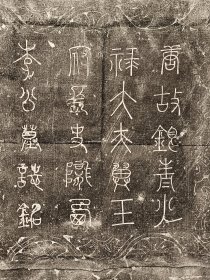 唐故銀青光
祿大夫冀王
府長史隴西
李公墓誌銘